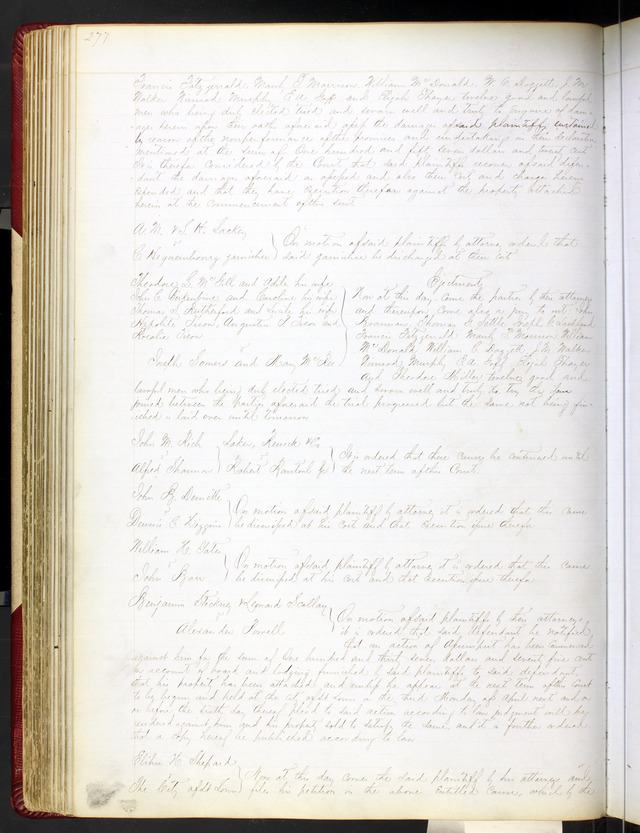 277
Francis Fitzgerald Manly T Morrison William McDonald W C Doggett J M
Walker Nimrod Murphy R A Goff and Elijah Thayer twelve good and lawful
men who being duly elected tried and sworn well and truly to enquire of dam-
ages herein upon their oaths aforesaid assess the damages aforesaid plaintiffs sustained
by reason of the nonperformance of the promises and undertakings in their declaration
mentioned at the sum of One hundred and fifty seven dollars and twenty cents
It is therefore Considered by the Court that said plaintiffs recover of said defen-
dant the damages aforesaid as assessed and also their Cost and charges herein
expended and that they have execution therefor against the property attached
herein at the commencement of this suit
A M & S H Lackey
vs
On motion of said plaintiffs by attorney ordered that
said garnishee be discharged at their Cost
Theodore L McGill and his wife
Caroline his wife
Thomas Rutherford and his wife
Augustus
Joseph Somers and Mary McKee
Ejectment
Now at this day Come the parties by their attorneys
and thereupon Come also a jury to wit John
Thomas Settle Joseph
Francis Fitzgerald Manly T Morrison William
McDonald William C Doggett J M Walker
Nimrod Murphy R A Goff Elijah Thayer
and Theodore twelve good and
lawful men who being duly elected tried and sworn well and truly to try the issue
joined between the parties aforesaid the trial progressed but the same not being fin-
ished is laid over until tomorrow
John M Rich
vs
Alfred Shannon
Robert Rantoul Jr
It is ordered that these causes be continued until
the next term of this Court
John R
vs
Dennis C Higgins
On motion of said plaintiff by attorney it is ordered that this cause
be dismissed at his cost and that execution issue therefor
William H Gates
vs
John
On motion of said plaintiff by attorney it is ordered that this cause
be dismissed at his cost and that execution issue therefor
Benjamin Stickney & Leonard Scollay
vs
Alexander Powell
On motion of said plaintiffs by their attorneys
it is ordered that said defendant be notified
that an action of Assumpsit has been commenced
against him for the sum of One hundred and thirty seven dollars and seventy five cents
on account of board and lodging furnished by said plaintiffs to said defendant
that his property has been attached and unless he appears at the next term of this Court
to be begun and held at the city of St Louis on the third Monday of April next and on
or before the sixth day thereof plead to said action according to law judgment will be
rendered against him and his property sold to satisfy the same and it is further ordered
that a copy hereof be published according to law
Elihu H Shepard
vs
The City of St Louis
Now at this day comes the said plaintiff by his attorney and
files his petition in the above entitled cause, which by the